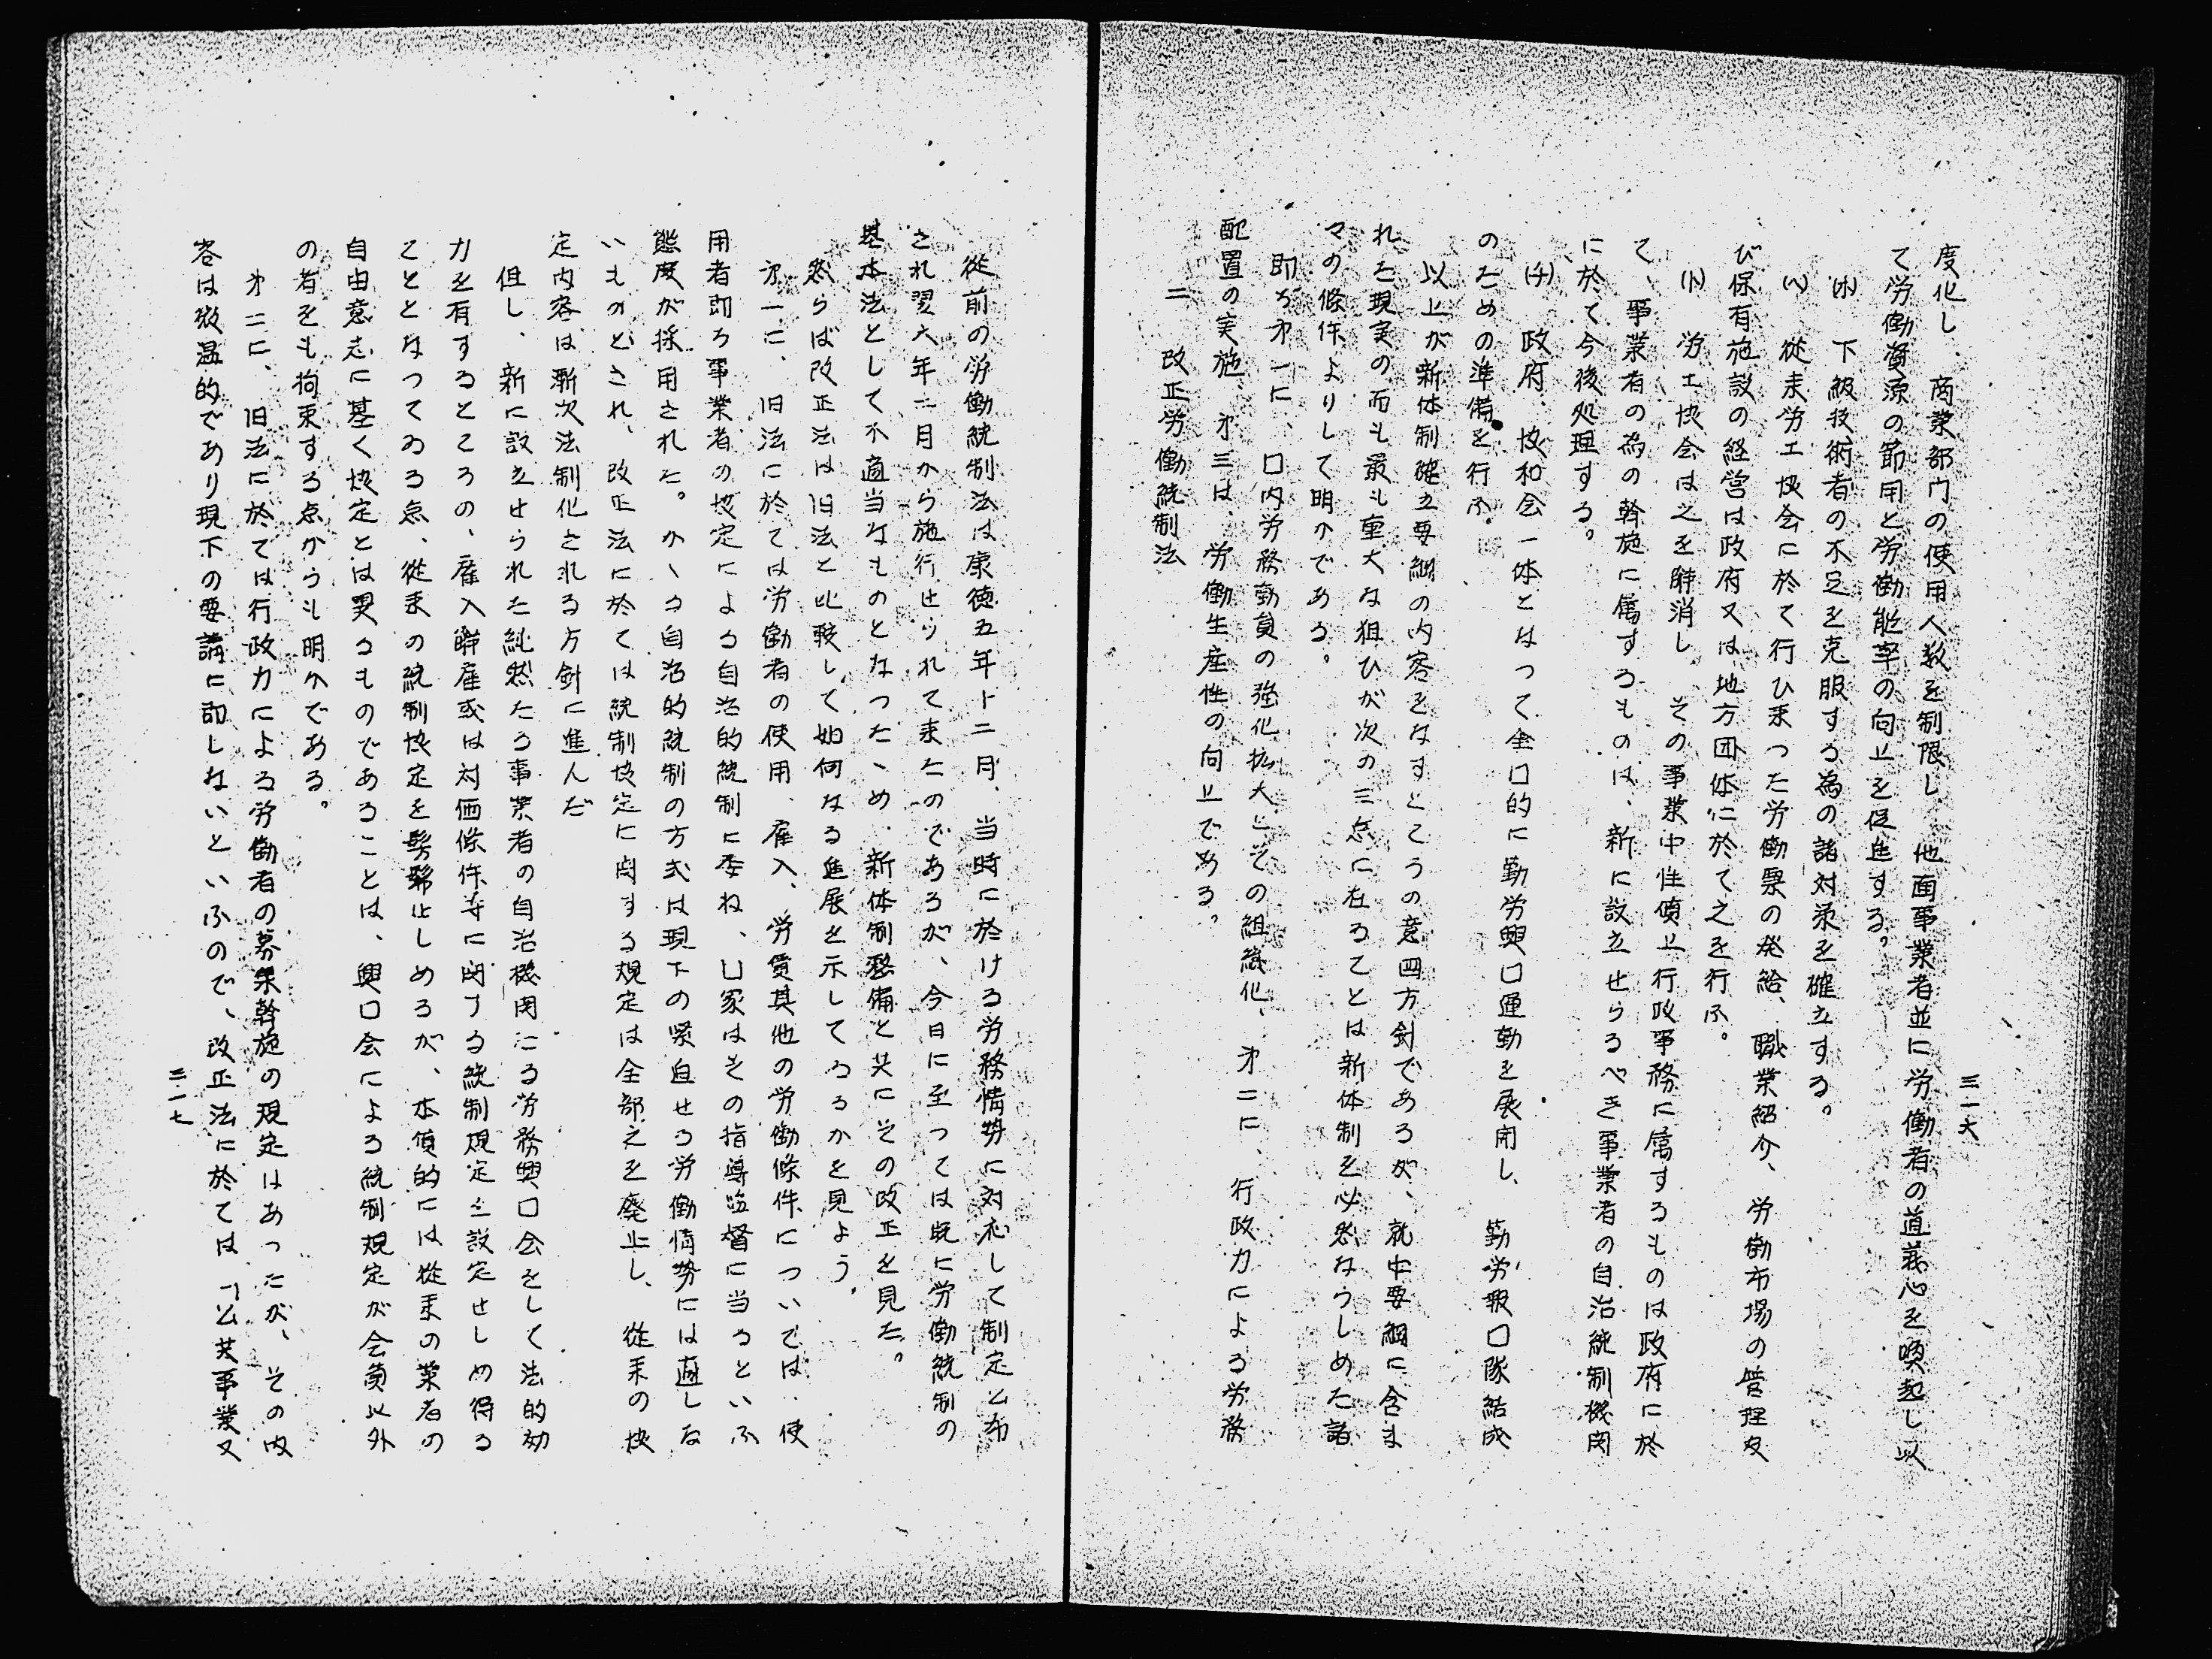 三一六
度化し、商業部門の使用人数を制限し、他面事業者並に労働者の道義心を喚起し以
て労働資源の節用と労働能率の向上を促進する。
(ホ) 下級技術者の不足を克服する為の諸対策を確立する。
(ヘ) 従来労工協会に於て行ひ来つた労働票の発給、職業紹介、労働市場の管理及
び保有施設の経営は政府又は地方団体に於て之を行ふ。
(ト) 労工協会は之を解消し、その事業中性質上行政事務に属するものは政府に於
て、事業者の為の斡旋に属するものは、新に設立せらるべき事業者の自治統制機関
に於て今後処理する。
(チ) 政府、協和会一体となつて全囗的に勤労興囗運動を展開し、勤労報囗隊結成
のための準備を行ふ。
以上が新体制確立要綱の内容をなすところの意図方針であるが、就中要綱に含ま
れた現実の而も最も重大な狙ひが次の三点に在ることは新体制を必然ならしめた諸
々の條件よりして明かである。
即ち㐧一に、囗内労務動員の強化拡大とその組織化、㐧二に、行政力による労務
配置の実施、㐧三は、労働生産性の向上である。
二 改正労働統制法
従前の労働統制法は康徳五年十二月、当時に於ける労務情勢に対応して制定公布
され翌六年二月から施行せられて来たのであるが、今日に至つては既に労働統制の
基本法として不適当なものとなつたゝめ、新体制整備と共にその改正を見た。
然らば改正法は旧法と比較して如何なる進展を示してゐるかを見よう。
㐧一に、旧法に於ては労働者の使用、雇入、労賃其他の労働條件については、使
用者即ち事業者の協定による自治的統制に委ね、囗家はその指導監督に当るといふ
態度が採用された。かゝる自治的統制の方式は現下の緊迫せる労働情勢には適しな
いものとされ、改正法に於ては統制協定に関する規定は全部之を廃止し、従来の協
定内容は漸次法制化される方針に進んだ
但し、新に設立せられた純然たる事業者の自治機関にる労務興囗会をして法的効
力を有するところの、雇入解雇或は対価條件等に関する統制規定を設定せしめ得る
こととなつてゐる点、従来の統制協定を髣髴せしめるが、本質的には従来の業者の
自由意志に基く協定とは異るものであることは、興囗会による統制規定が会員以外
の者をも拘束する点からも明かである。
㐧二に、旧法に於ては行政力による労働者の募集斡旋の規定はあつたが、その内
容は微温的であり現下の要請に即しないといふので、改正法に於ては「公共事業又
三一七